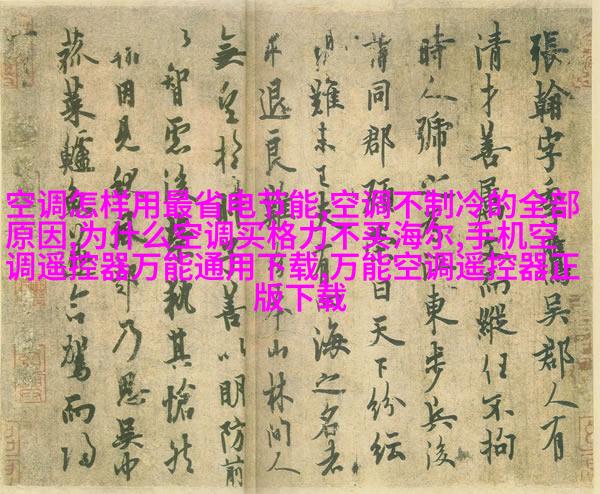 空调怎样用最省电节能,空调不制冷的全部
原因,为什么空调买格力不买海尔,手机空
调遥控器万能通用下载,万能空调遥控器正
版下载
張翰字吳郡人有
清才善屬而縱任不拘
時人號東步兵後
謂同郡曰天下紛紜
難未海之名者
求退良山林間人
無望於善以明防前
智慮執其愴然
因見乃思吳中
菰菜鱸命駕而歸